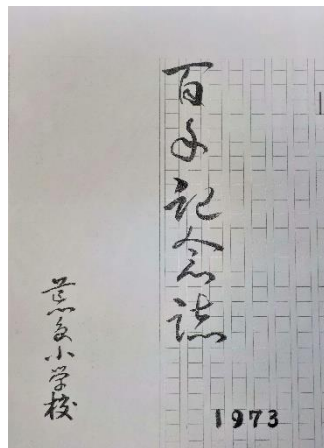 百年記念誌
小学校
1973